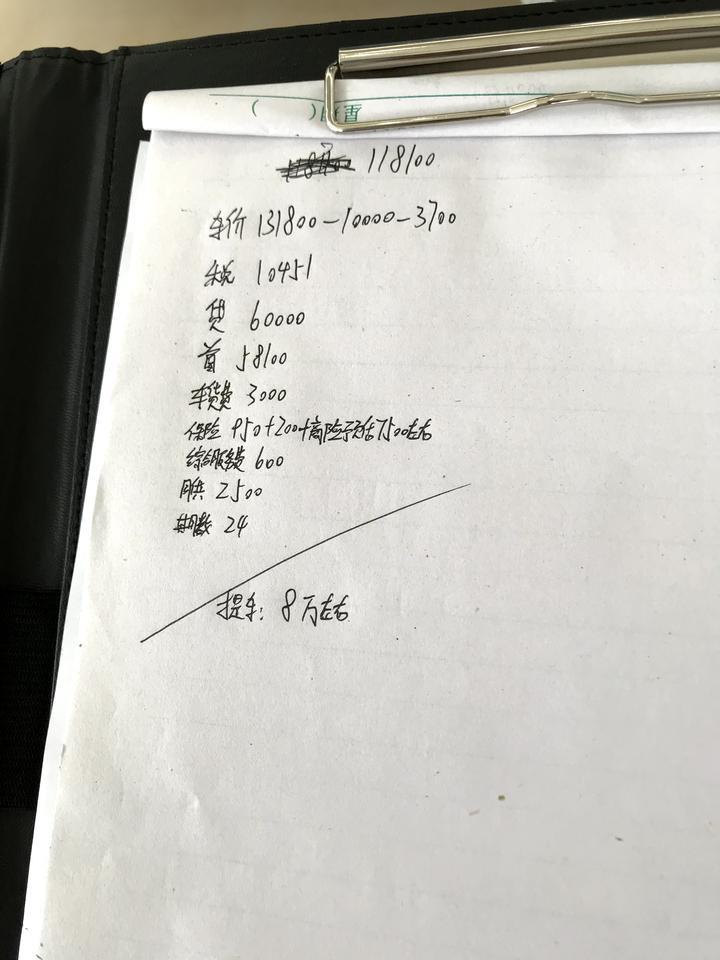 118100
车价 131800-10000-3700
税 10451
贷 60000
首 58100
车贷费 3000
保险 950+200+商险预估7500左右
综合服务费 600
月供 2500
期数 24
提车: 8万左右